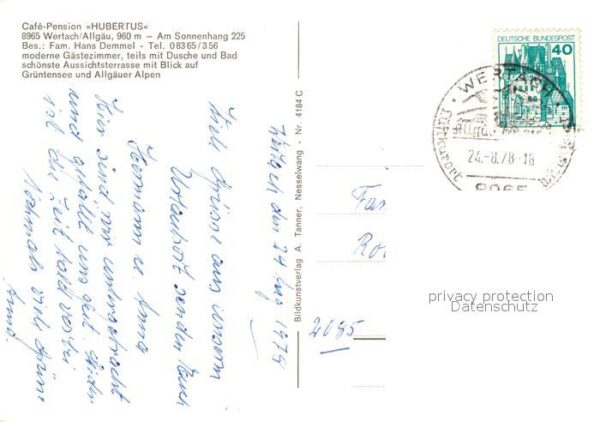 Café-Pension »HUBERTUS«
8965 Wertach/Allgäu, 960 m – Am Sonnenhang 225
Bes.: Fam. Hans Demmel - Tel. 08365/356
moderne Gästezimmer, teils mit Dusche und Bad
schönste Aussichtsterrasse mit Blick auf
Grüntensee und Allgäuer Alpen
Wertach den 24 Aug 1978
Viele Grüsse aus unserem
Urlaubsort senden Euch
Hermann u. Anna
Hier sind wir untergebracht
und gefällt uns gut. Leider
ist die Zeit bald vorbei
Nochmals viele Grüsse
Anna.
Bildkunstverlag A. Tanner, Nesselwang - Nr. 4184 C
DEUTSCHE BUNDESPOST
40
WERTACH
24.-8.78-18
8965
Fam
Ro
2085
privacy protection
Datenschutz